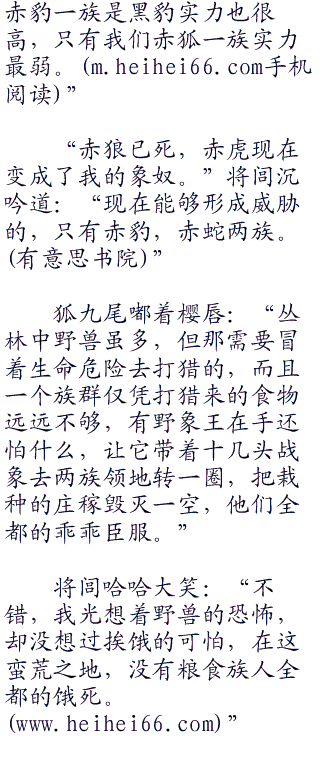 赤豹一族是黑豹实力也很
高，只有我们赤狐一族实力
最弱。(m.heihei66.com手机
阅读)”
“赤狼已死，赤虎现在
变成了我的象奴。”将闾沉
吟道：“现在能够形成威胁
的，只有赤豹，赤蛇两族。
(有意思书院)”
狐九尾嘟着樱唇：“丛
林中野兽虽多，但那需要冒
着生命危险去打猎的，而且
一个族群仅凭打猎来的食物
远远不够，有野象王在手还
怕什么，让它带着十几头战
象去两族领地转一圈，把栽
种的庄稼毁灭一空，他们全
都的乖乖臣服。”
将闾哈哈大笑：“不
错，我光想着野兽的恐怖，
却没想过挨饿的可怕，在这
蛮荒之地，没有粮食族人全
都的饿死。
(www.heihei66.com)”